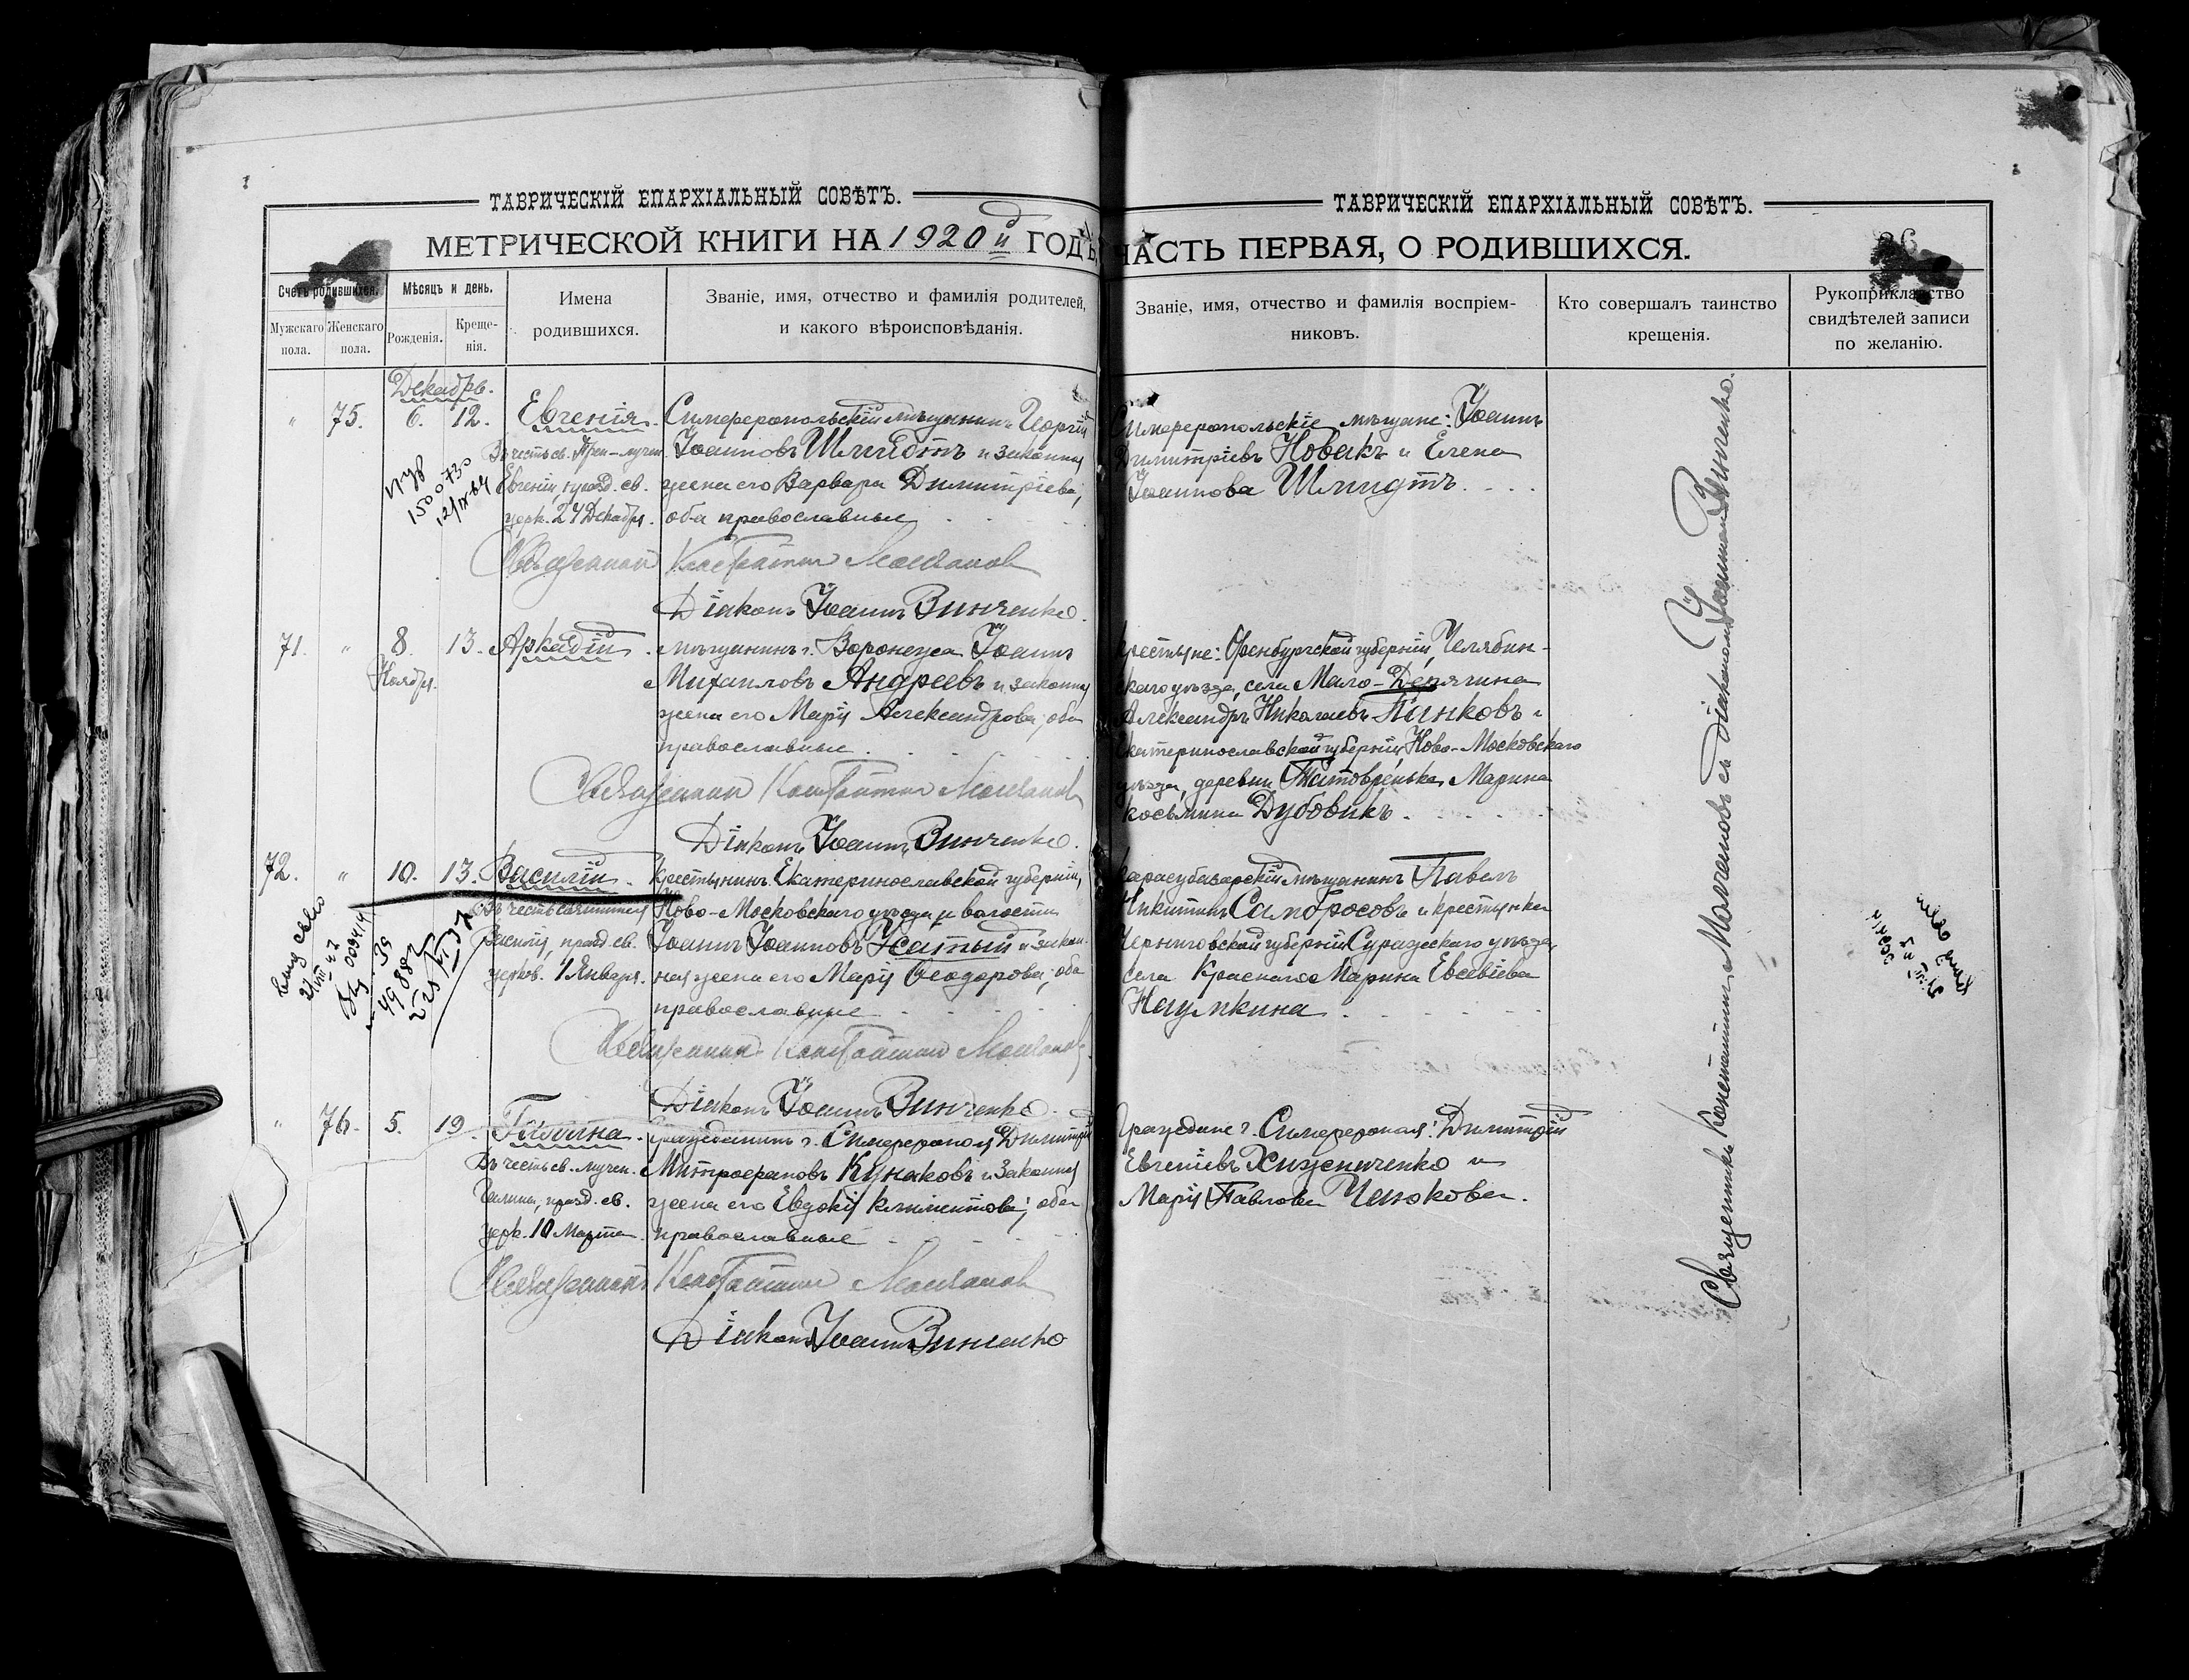 ТАВРИЧЕСКІЙ ЕПАРХІАЛЬНЫЙ СОВѢТЪ.
МЕТРИЧЕСКОЙ КНИГИ НА 1920й ГОДЪ,
Счетъ родившихся.
Мѣсяцъ и день.
Имена родившихся.
Званіе, имя, отчество и фамилія родителей, и какого вѣроисповѣданія.
Мужскаго пола.
Женскаго пола.
Рожденія.
Крещенія.
Декабрь.
" 75. 6. 12. Евгенія. Симферопольскій мѣщанинъ Георгій
Въ честь св. Преп-мучен. Іоанновъ Шмидтъ и законная
Евгеніи, празд. св. жена его Варвара Димитріева,
церк. 24 Декабря. оба православные
150730
12/IX-64
Священникъ Константинъ Молчановъ
Діаконъ Іоаннъ Винченко.
71. " 8. 13. Аркадій. мѣщанинъ г. Воронежа Іоаннъ
Ноября. Михаиловъ Андреевъ и законная
жена его Марія Александрова, оба
православные.
Священникъ Константинъ Молчановъ
Діаконъ Іоаннъ Винченко.
72. " 10. 13. Василій. Крестьянинъ Екатеринославской губерніи,
Въ честь святителя Ново-Московскаго уѣзда и волости
Василія, празд. св. Іоаннъ Іоанновъ Усатый и закон-
церков. 1 Января. ная жена его Марія Ѳеодорова, оба
православные
Священникъ Константинъ Молчановъ
Діаконъ Іоаннъ Винченко.
" 76. 5. 19. Галина. Гражданинъ г. Симферополя Димитрій
Въ честь св. мучен. Митрофановъ Кунаковъ и законная
Галины, празд. св. жена его Евдокія Климентова, оба
церк. 10 Марта. православные
Священникъ Константинъ Молчановъ
Діаконъ Іоаннъ Винченко
ТАВРИЧЕСКІЙ ЕПАРХІАЛЬНЫЙ СОВѢТЪ.
ЧАСТЬ ПЕРВАЯ, О РОДИВШИХСЯ.
Званіе, имя, отчество и фамилія воспріемниковъ.
Кто совершалъ таинство крещенія.
Рукоприкладство свидѣтелей записи по желанію.
Симферопольскіе мѣщане: Іоаннъ
Димитріевъ Новакъ и Елена
Іоаннова Шмидтъ.
Крестьяне: Оренбургской губерніи, Челябин-
скаго уѣзда, села Мало-Дерягина
Александръ Николаевъ Пинковъ и
Екатеринославской губерніи, Ново-Московскаго
уѣзда, деревни Марина
Косьмина Дубовикъ.
Карасубазарскій мѣщанинъ Павелъ
Никитинъ Саморосовъ и крестьянка
Черниговской губерніи Суражскаго уѣзда,
села Краснаго Марина Евсевіева
Наумкина
Граждане г. Симферополя: Димитрій
Евгеніевъ Хижниченко и
Марія Павлова Чепокова.
Священникъ Константинъ Молчановъ съ діакономъ Іоанномъ Винченко.